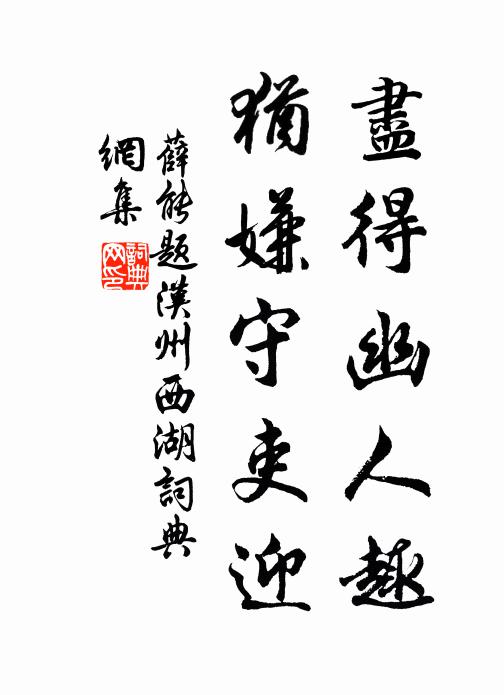 盡得幽人趣
猶嫌守吏迎
薛能題漢州西湖詞典
網集
詞典
网印